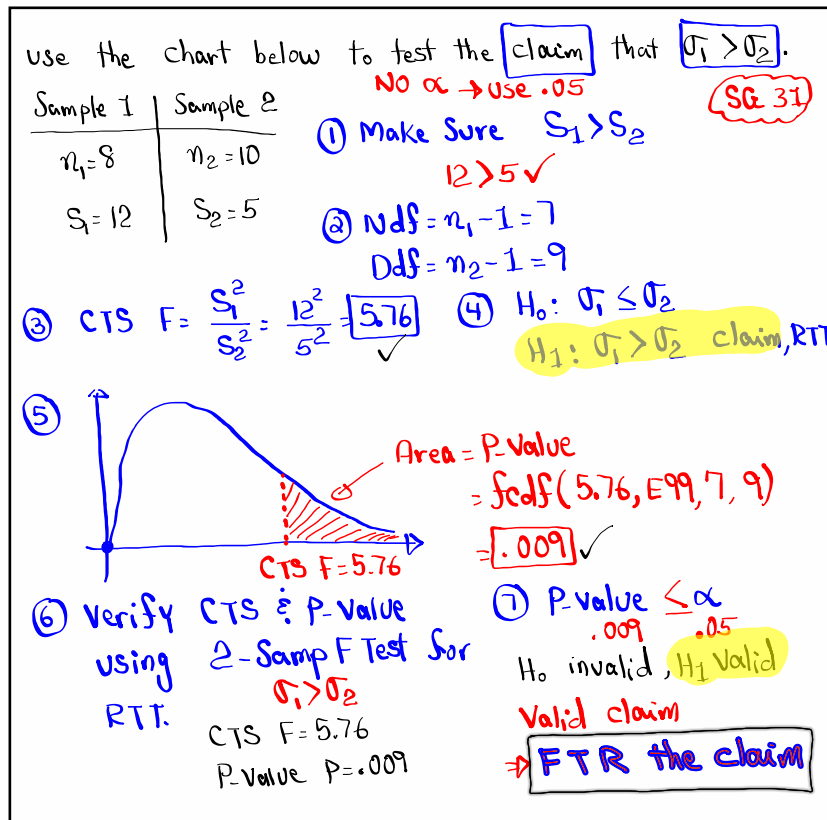 use the chart below to test the claim that σ₁ > σ₂.
NO α → use .05
SG 31
Sample 1 | Sample 2
n₁=8 n₂=10
S₁=12 S₂=5
① Make Sure S₁>S₂
12>5 ✓
② Ndf = n₁-1=7
Ddf = n₂-1=9
③ CTS F = S₁²/S₂² = 12²/5² = 5.76 ✓
④ H₀: σ₁ ≤ σ₂
H₁: σ₁ > σ₂ claim, RTT
⑤
Area = P-Value
= fcdf(5.76, E99, 7, 9)
= .009 ✓
CTS F=5.76
⑥ Verify CTS & P-Value
using 2-Samp F Test for
σ₁>σ₂
RTT.
CTS F=5.76
P-Value P=.009
⑦ P-value ≤ α
.009 .05
H₀ invalid, H₁ Valid
Valid claim
⇒ FTR the claim